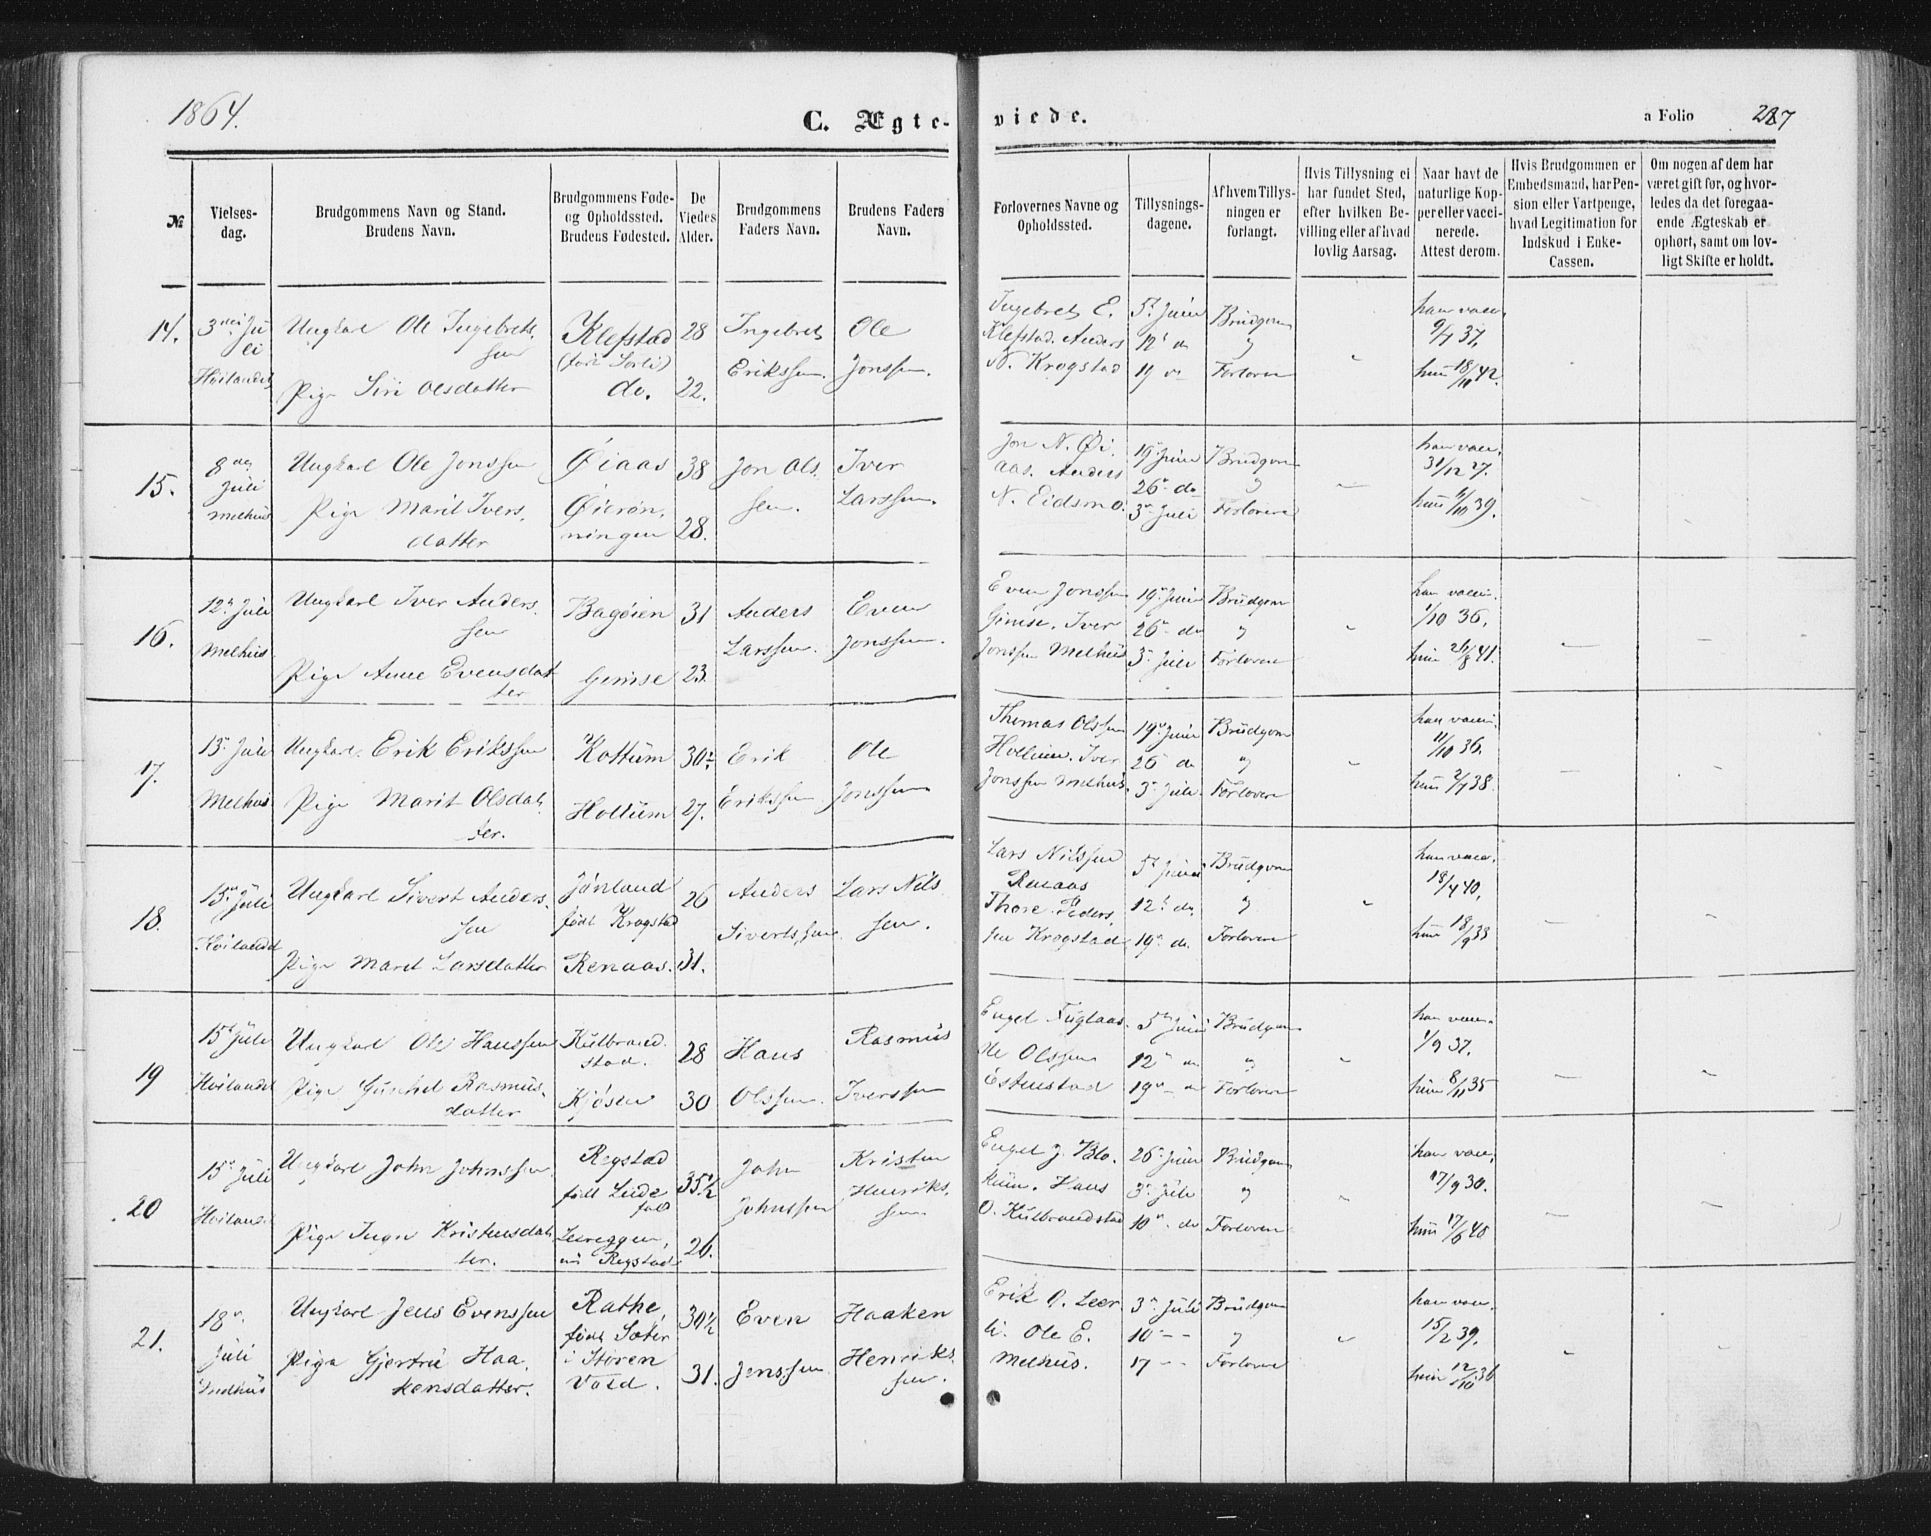 1864.
C. Ægte-
viede.
a Folio 227
№
Vielses-
dag.
Brudgommens Navn og Stand.
Brudens Navn.
Brudgommens Føde-
og Opholdssted.
Brudens Fødested.
De
Viedes
Alder.
Brudgommens
Faders Navn.
Brudens Faders
Navn.
Forlovernes Navne og
Opholdssted.
Tillysnings-
dagene.
Af hvem Tillys-
ningen er
forlangt.
Hvis Tillysning ei
har fundet Sted,
efter hvilken Be-
villing eller af hvad
lovlig Aarsag.
Naar havt de
naturlige Kop-
per eller vacci-
nerede.
Attest derom.
Hvis Brudgommen er
Embedsmand, har Pen-
sion eller Vartpenge,
hvad Legitimation for
Indskud i Enke-
Cassen.
Om nogen af dem har
været gift før, og hvor-
ledes da det foregaa-
ende Ægteskab er
ophørt, samt om lov-
ligt Skifte er holdt.
14.
Høilandet
Ungkarl Ole Ingebrets
sen
Pige Siri Olsdatter
Klefstad
do.
28
22.
Ingebret
Erikssen.
Ole
Jonssen.
Ingebret E.
Klefstad. Anders
N. Krogstad
5t Juni
12t do
19
Brudgom
"
Forlovere
han vacc.
9/7 37.
hun 18/10 42.
15.
8de
Juli
Melhus
Ungkarl Ole Jonssen
Pige Marit Ivers
datter
Øiaas
Øierøn,
ningen
38
28.
Jon Ols
sen.
Iver
Larssen.
Jon N. Øi
aas. Anders
N. Eidsmo.
19. Juni
26. do
3. Juli
Brudgom
"
Forlovere
han vacc.
31/12 27.
16.
12t Juli
Melhus
Ungkarl Iver Anders
sen
Pige Anne Evensdat
ter
Bagøien
Gimse
31
23.
Anders
Larssen.
Even
Jonssen.
Even Jonssen
Gimse. Iver
Jonssen Melhus
19. Juni
26. do
3. Juli
Brudgom
"
Forlovere
han vacc.
1/10 36.
17.
15. Juli
Melhus
Ungkarl Erik Erikssen
Pige Marit Olsdat
ter.
Kottum
Hollum
27.
Erik
Erikssen
Ole
Jonssen
Thomas Olssen
Hollum. Iver
Jonssen Melhus.
19. Juni
26 do
3. Juli
Brudgom
"
Forlovere
han vacc.
11/10 36.
hun 2/7 38.
18.
15. Juli
Høilandet
Ungkarl Sivert Anders
sen
Pige Marit Larsdatter
Jønland
født Krogstad
Renaas.
26
31.
Anders
Sivertssen
Lars Nils
sen.
Lars Nilssen
Renaas
Thore Peders
sen Krogstad
5t Juni
12t do
19. do
Brudgom
"
Forlovere
han vacc.
18/4 40.
hun 18/9 33
19
15t Juli
Høilandet
Ungkarl Ole Hanssen
Pige Gunhild Rasmus
datter
Kulbrand
stad.
Kjøsen
28
30
Hans
Olssen.
Rasmus
Iverssen
Engel Fuglaas.
Ole Olssen
Estenstad
5t Juni
12
19
Brudgom
"
Forlovere
han vacc.
1/9 37.
hun 8/11 35
20
15. Juli
Høilandet
Ungkarl John Johnssen
Pige Inger Kristensdat
ter.
Regstad
26.
John
Johnssen
Kristen
Henriks
sen
Engel J. Blo
kum. Hans
O. Kulbrandstad
26. Juni
3. Juli
10. do
Brudgom
"
Forlovere
han vacc.
17/9 30.
hun 17/6 40
21.
18.
Juli
Melhus
Ungkarl Jens Evenssen
Pige Gjertru Haa
kensdatter.
Rathe,
i Støren
Vold.
30½
31.
Even
Jenssen
Haaken
Henriks
sen.
Erik O. Leer
li. Ole E.
Melhus.
3. Juli
10
17
Brudgom
"
Forlovere
han vacc.
15/2 39.
hun 12/10 36